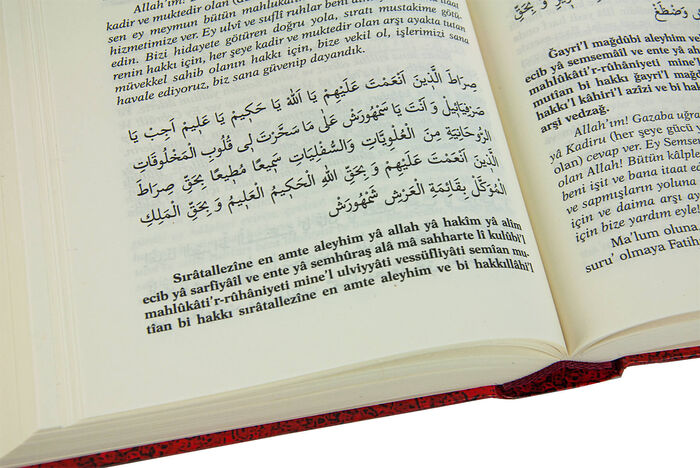 Allah'ım!
kadir ve muktedir olan
sen ey meymun bütün mahlukat
hizmetimize ver. Ey ulvi ve sufli ruhlar beni
edin. Bizi hidayete götüren doğru yola, sıratı mustakime götü-
renin hakkı için, her şeye kadir ve muktedir olan arşı ayakta tutan
müvekkel sahib olanın hakkı için, bize vekil ol, işlerimizi sana
havale ediyoruz, biz sana güvenip dayandık.
صِرَاطَ الَّذِينَ اَنْعَمْتَ عَلَيْهِمْ يَا اَللهُ يَا حَكِيمُ يَا عَلِيمُ اَجِبْ يَا
صَرْفَيَائِيلُ وَ اَنْتَ يَا سَمْهُورَشُ عَلٰى مَا سَخَّرْتَ لِى قُلُوبَ الْمَخْلُوقَاتِ
الرُّوحَانِيَّةِ مِنَ الْعُلْوِيَّاتِ وَالسُّفْلِيَّاتِ سَمِيعًا مُطِيعًا بِحَقِّ صِرَاطَ
الَّذِينَ اَنْعَمْتَ عَلَيْهِمْ وَ بِحَقِّ اللهِ الْحَكِيمُ الْعَلِيمُ وَ بِحَقِّ الْمَلِكِ
الْمُوَكَّلِ بِقَائِمَةِ الْعَرْشِ شَمْهُورَشْ
Sırâtallezîne en amte aleyhim yâ allah yâ hakîm yâ alim
ecib yâ sarfiyâil ve ente yâ semhûraş alâ mâ sahharte li kulûbi'l
mahlûkâti'r-rûhâniyeti mine'l ulviyyâti vessüfliyâti semîan mu-
tîan bi hakkı sırâtallezîne en amte aleyhim ve bi hakkıllâhi'l
وَ صَطَعْ
Ğayri'l mağdûbi aleyhim ve
ecib yâ semsemâil ve ente yâ
mahlûkâti'r-rûhâniyeti mine
mutîan bi hakkı ğayri'l mağ
hakkı'l kâhiri'l azîzi ve bi ha
arşi vedzağ.
Allah'ım! Gazaba uğra
yâ Kadiru (her şeye gücü y
olan) cevap ver. Ey Semsem
olan Allah! Bütün kâlple
beni işit ve bana itaat ed
ve sapmışların yoluna
için ve daima arşı ay
için bize yardım eyle!
Ma'lum oluna,
suru' olmaya Fatih